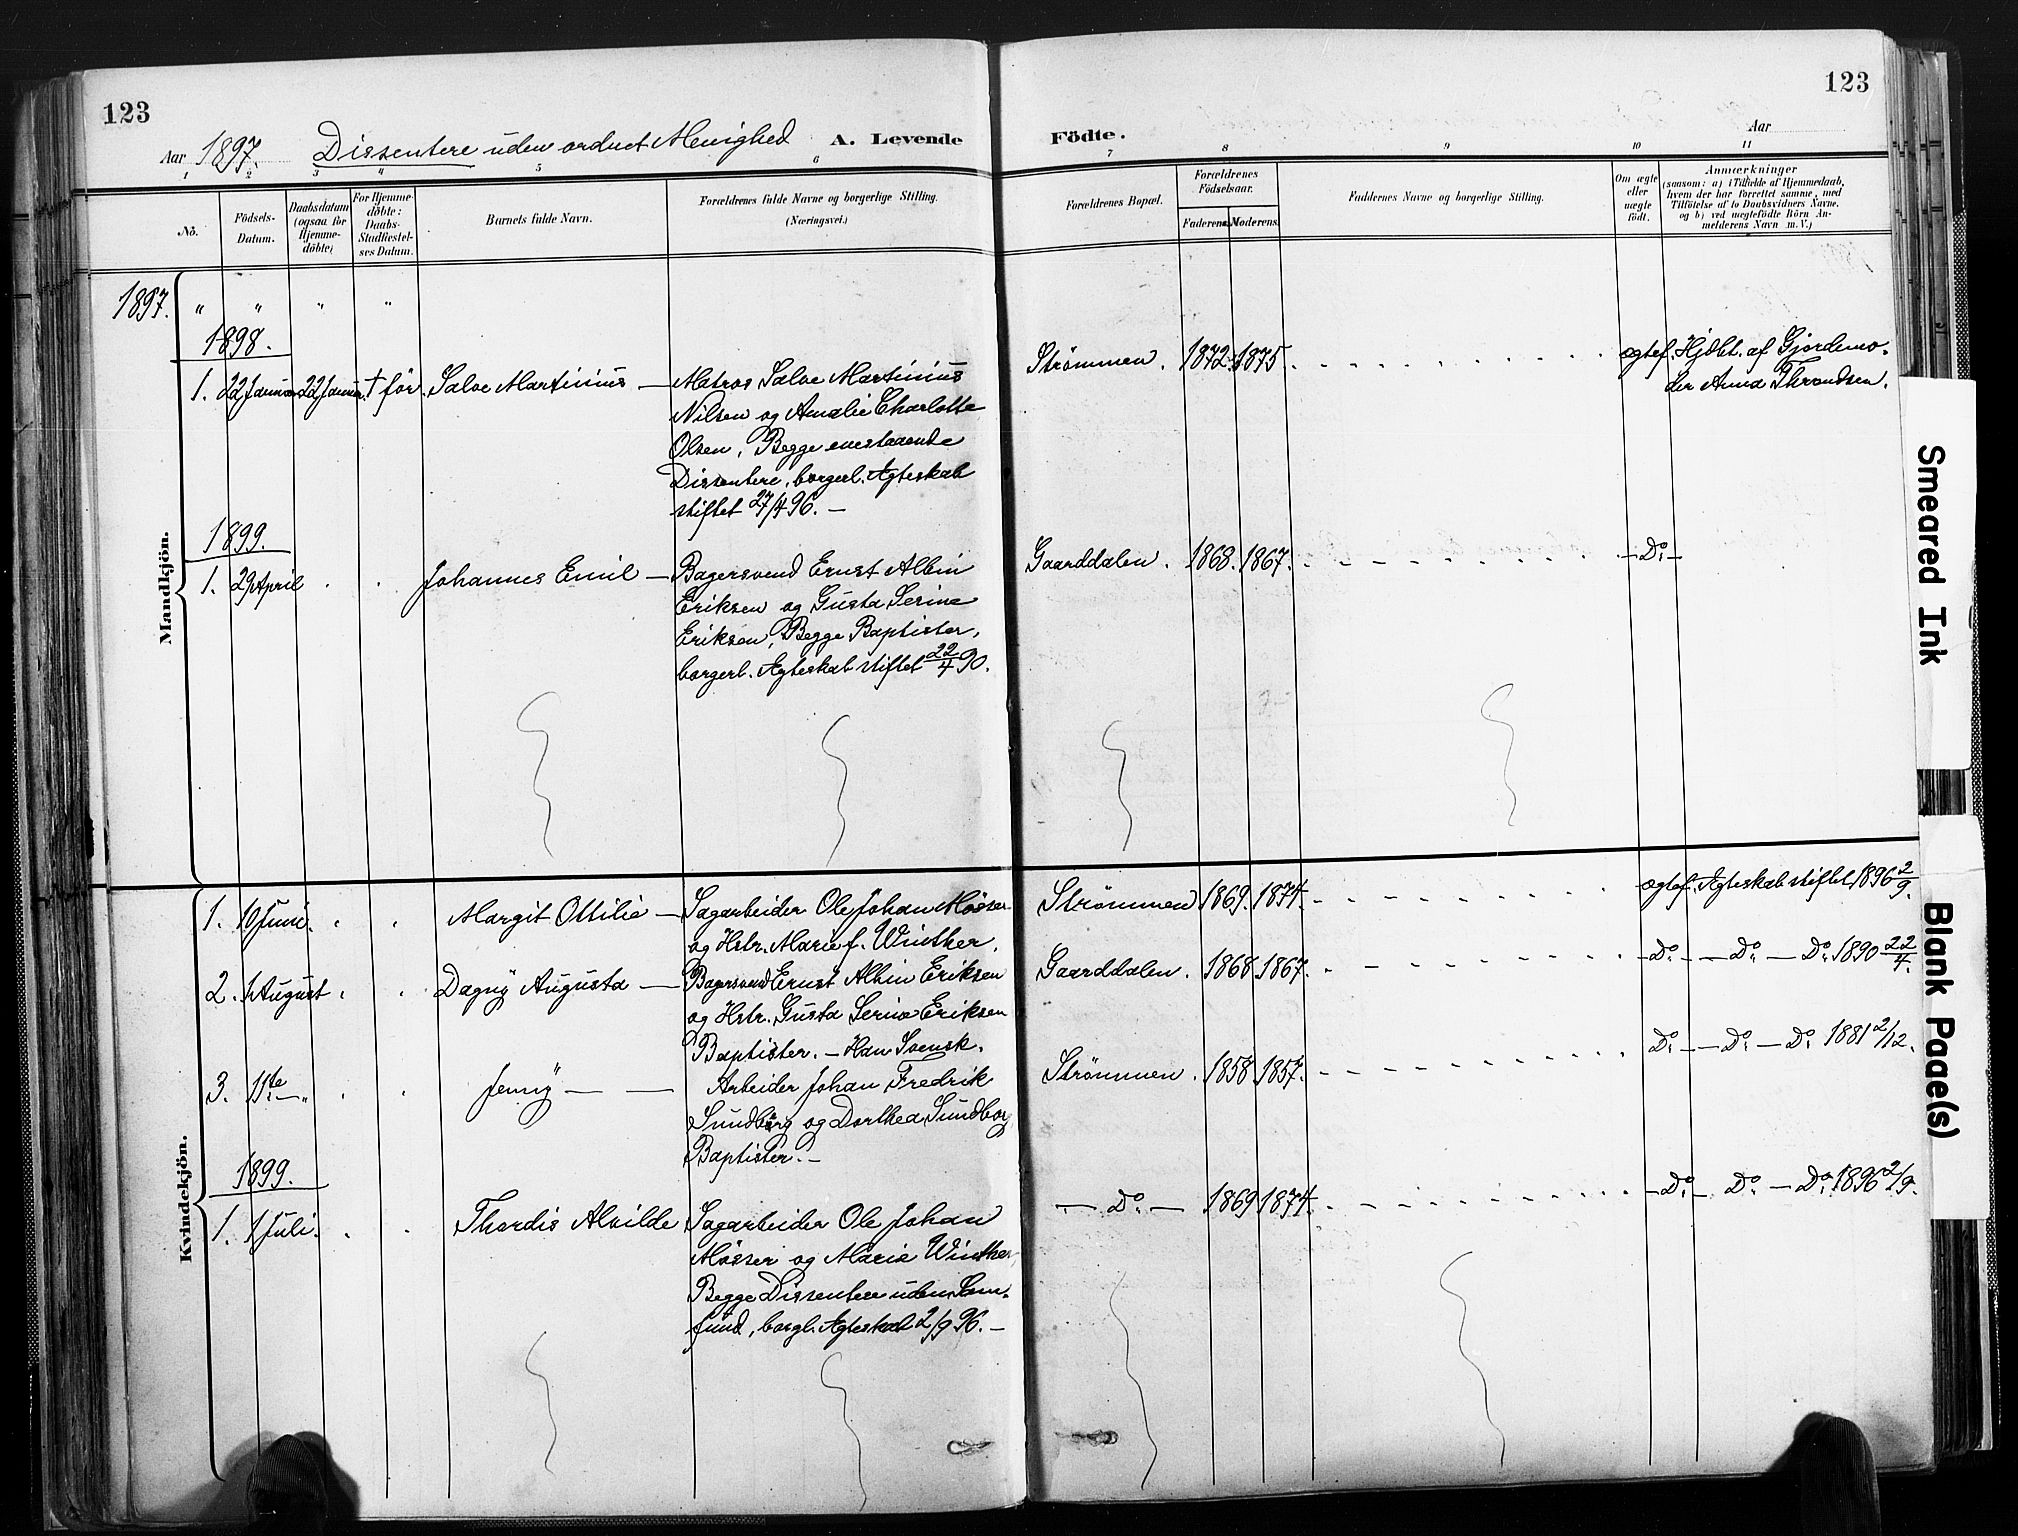 123
123
Aar 1897. Dissentere uden ordnet Menighed A. Levende Födte. Aar
1 2 3 4 5 6 7 8 9 10 11
No.
Födsels-
Datum.
Daabsdatum
(ogsaa for
Hjemme-
döbte)
For Hjemme-
döbte:
Daabs-
Stadfæstel-
ses Datum.
Barnets fulde Navn.
Forældrenes fulde Navne og borgerlige Stilling.
(Næringsvei.)
Forældrenes Bopæl.
Forældrenes
Födselsaar.
Faderens.
Moderens.
Faddernes Navne og borgerlige Stilling.
Om ægte
eller
uægte
födt.
Anmærkninger
(saasom: a) i Tilfælde af Hjemmedaab,
hvem der har forrettet samme, med
Tilföielse af to Daabsvidners Navne,
og b) ved uægtefödte Börn An-
melderens Navn m. V.)
Mandkjön.
1897. " " " "
1898.
1. 22 Januar 22 Januar † før. Salve Martinius — Matros Salve Martinius
Nilsen og Amalie Charlotte
Olsen, Begge enestaaende
Dissentere, borgerl. Ægteskab
stiftet 27/4 96. —
Strømmen. 1872. 1875. ægtef. Hjdbt. af Gjordemo-
der Anna Throndsen.
1899.
1. 29 April Johannes Emil — Bagersvend Ernst Albin
Eriksen og Gusta Serine
Eriksen, Begge Baptister,
borgerl. Ægteskab stiftet 22/4 90.
Gaarddalen. 1868. 1867. — Do. —
Kvindekjön.
1. 10 Juni. Margit Ottilie — Sagarbeider Ole Johan Mösser
og Hstr. Marie f. Winther.
Strømmen 1869. 1874. ægtef. Ægteskab stiftet 1896 2/9.
2. 1 August Dagny Augusta — Bagersvend Ernst Albin Eriksen
og Hstr. Gusta Serine Eriksen
Baptister. — Han Svensk.
Gaarddalen. 1868. 1867. — Do. — — Do. — Do. 1890 22/4.
3. 11te — " Jenny — — Arbeider Johan Fredrik
Sundborg og Dorthea Sundborg
Baptister. —
Strømmen. 1858. 1857. Do. — — Do. — Do. 1881 2/12.
1899.
1. 1 Juli. Thordis Alvilde Sagarbeider Ole Johan
Mösser og Marie Winther,
Begge Dissentere uden Sam-
fund, borgl. Ægteskab 2/9 96. —
— Do. — 1869 1874. — Do. — Do. — Do. 1896 2/9.
Smeared Ink
Blank Page(s)